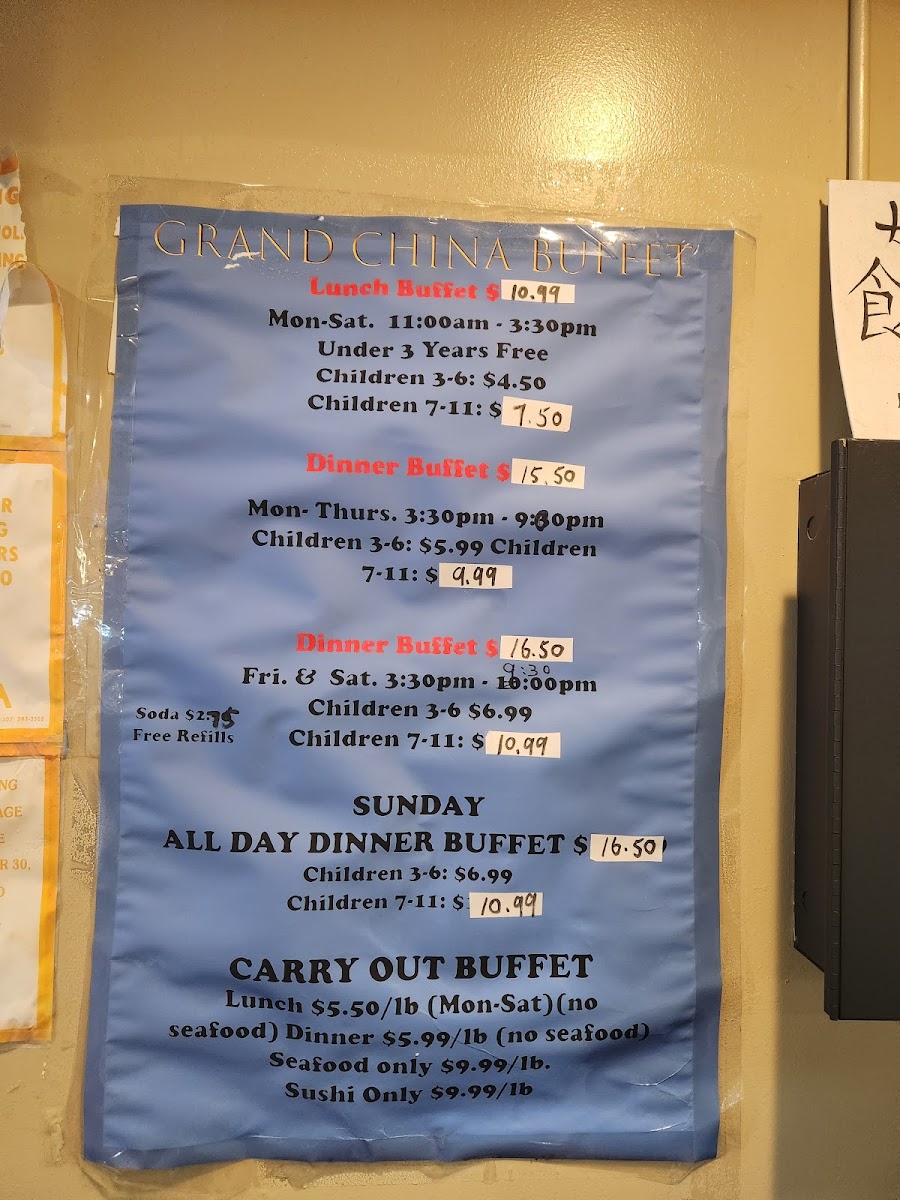 GRAND CHINA BUFFET
Lunch Buffet $ 10.99
Mon-Sat. 11:00am - 3:30pm
Under 3 Years Free
Children 3-6: $4.50
Children 7-11: $ 7.50
Dinner Buffet $ 15.50
Mon- Thurs. 3:30pm - 9:00pm
Children 3-6: $5.99 Children
7-11: $ 9.99
Dinner Buffet $ 16.50
9:30
Fri. & Sat. 3:30pm - 10:00pm
Children 3-6 $6.99
Soda $2.75
Free Refills
Children 7-11: $ 10.99
SUNDAY
ALL DAY DINNER BUFFET $ 16.50
Children 3-6: $6.99
Children 7-11: $ 10.99
CARRY OUT BUFFET
Lunch $5.50/lb (Mon-Sat)(no
seafood) Dinner $5.99/lb (no seafood)
Seafood only $9.99/lb.
Sushi Only $9.99/lb
食